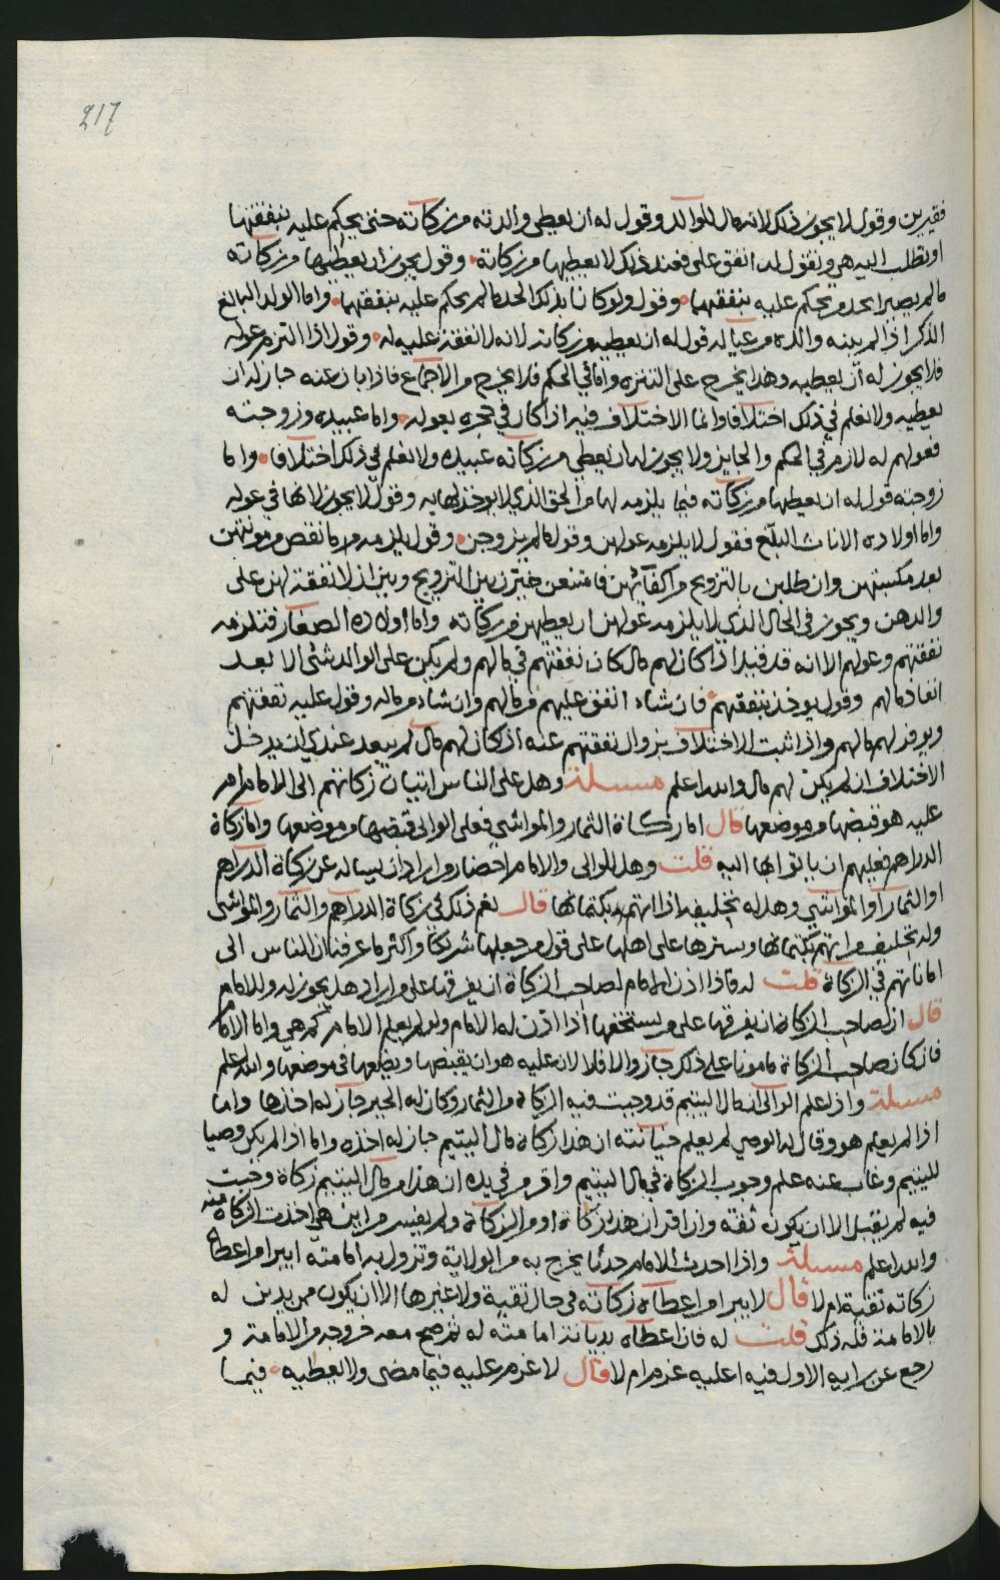 217
فقيرين وقول لا يجوز ذلك لانه مال للوالد وقول له ان يعطي والدته من زكاته حتى يحكم عليه بنفقتها
او تطلب اليه هي وتقول له انفق علي فعند ذلك لا يعطيها من زكاته وقول يجوز ان يعطيها من زكاته
ما لم يصيرا بحد من يحكم عليه بنفقتهما وقول ولو كانا بذلك الحد ما لم يحكم عليه بنفقتهما واما الولد البالغ
الذكر اذا لم يبنه والده من عياله قول له ان يعطيه من زكاته لانه لا نفقة عليه له وقول اذا التزم عوله
فلا يجوز له ان يعطيه وهذا يخرج على التنزه واما في الحكم فلا يخرج من الاجماع فاذا بان عنه جاز له ان
يعطيه ولا نعلم في ذلك اختلافا وانما الاختلاف فيه اذا كان في حجره يعوله واما عبيده وزوجته
فعولهم له لازم في الحكم والجايز ولا يجوز له ان يعطي من زكاته عبيده ولا نعلم في ذلك اختلافا واما
زوجته قول له ان يعطيها من زكاته فيما يلزمه لها من الحق الذي لا يوخذ لها به وقول لا يجوز لانها في عوله
واما اولاده الاناث البلغ فقول لا يلزمه عولهن وقول ما لم يزوجن وقول يلزمه من ما نقص من مونتهن
بعد مكسبتهن وان طلبن بالتزويج من اكفآئهن فامتنعن خيرن بين التزويج وبين ان لا نفقة لهن على
والدهن ويجوز في الحال الذي لا يلزمه عولهن ان يعطيهن من زكاته واما اولاده الصغار فتلزمه
نفقتهم وعولهم الا انه قد قيل اذا كان لهم مال كان نفقتهم في مالهم ولم يكن على الوالد شئ الا بعد
انفاد مالهم وقول يوخذ بنفقتهم فان شاء انفق عليهم من مالهم وان شاء من ماله وقول عليه نفقتهم
ويوفر لهم مالهم واذا ثبت الاختلاف بزوال نفقتهم عنه اذا كان لهم مال لم يبعد عندي ان يدخل
الاختلاف ان لم يكن لهم مال والله اعلم مسئلة وهل على الناس اتيان زكاتهم الى الامام ام
عليه هو قبضها من موضعها قال اما زكاة الثمار والمواشي فعلى الوالي قبضها من موضعها واما زكاة
الدراهم فعليهم ان ياتوا بها اليه قلت وهل للوالي والامام احضار من اراد ان يساله عن زكاة الدراهم
او الثمار او المواشي وهل له تحليفه اذا اتهم بكتمانها قال نعم ذلك في زكاة الدراهم والثمار والمواشي
وله تحليف من اتهم بكتمانها ويسترها على اهلها على قول من جعلها شريكا واكثر ما عرفنا ان الناس الى
اماناتهم في الزكاة قلت له فاذا اذن الامام لصاحب الزكاة ان يفرقها على من اراد هل يجوز له وللامام
قال ان لصاحب الزكاة ان يفرقها على من يستحقها اذا اذن له الامام ولو لم يعلم الامام كم هي واما الامام
فان كان صاحب الزكاة مامونا على ذلك جاز والا فلا لان عليه هو ان يقبضها ويضعها في موضعها والله اعلم
مسئلة واذا علم الوالي ان مال اليتيم قد وجبت فيه الزكاة من الثمار وكان له الخير جاز له اخذها واما
اذا لم يعلم هو وقال له الوصي لم يعلم خيانته ان هذا زكاة مال اليتيم جاز له اخذه واما اذا لم يكن وصيا
لليتيم وغاب عنه علم وجوب الزكاة في مال اليتيم واقر من في يده ان هذا من مال اليتيم زكاة وجبت
فيه لم يقبل الا ان يكون ثقة وان اقر ان هذا زكاة او من الزكاة ولم يفسر من اين هي اخذت الزكاة منه
والله اعلم مسئلة واذا احدث الامام حدثا يخرج به من الولاية وتزول به امامته ايبرا من اعطاه
زكاته تقية ام لا قال لا يبرا من اعطاه زكاته في حال تقية ولا غيرها الا ان يكون ممن يدين له
بالامامة فله ذلك قلت له فان اعطاه بديانة امامته له ثم صح معه خروجه من الامامة و
رجع عن رايه الاول فيه اعليه غرم ام لا قال لا غرم عليه فيما مضى ولا يعطيه فيما